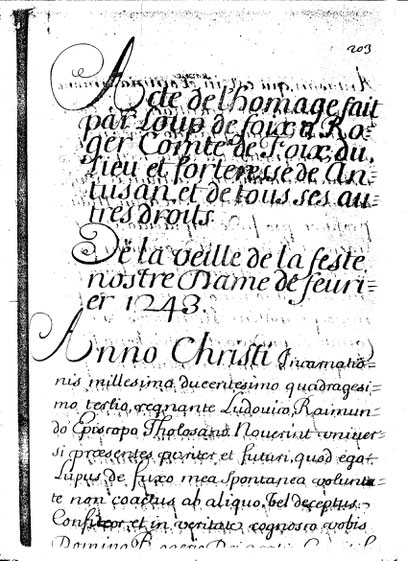 203
Acte de l'homage fait
par Loup de foix a Ro=
ger Comte de Foix, du
lieu et forteresse de An=
tusan et de tous ses au=
tres droits
De la veille de la feste
nostre Dame de feuri=
er 1243.
Anno Christi Incarnatio=
nis millesimo ducentesimo quadragesi=
mo tertio, regnante Ludovico, Raimun=
do Episcopo Tholosano Noverint univer=
si præsentes pariter et futuri, quod ego
Lupus de fuxo mea spontanea volunta=
te non coactus ab aliquo, vel deceptus
Confiteor, et in veritate cognosco vobis
Domino Rogerio